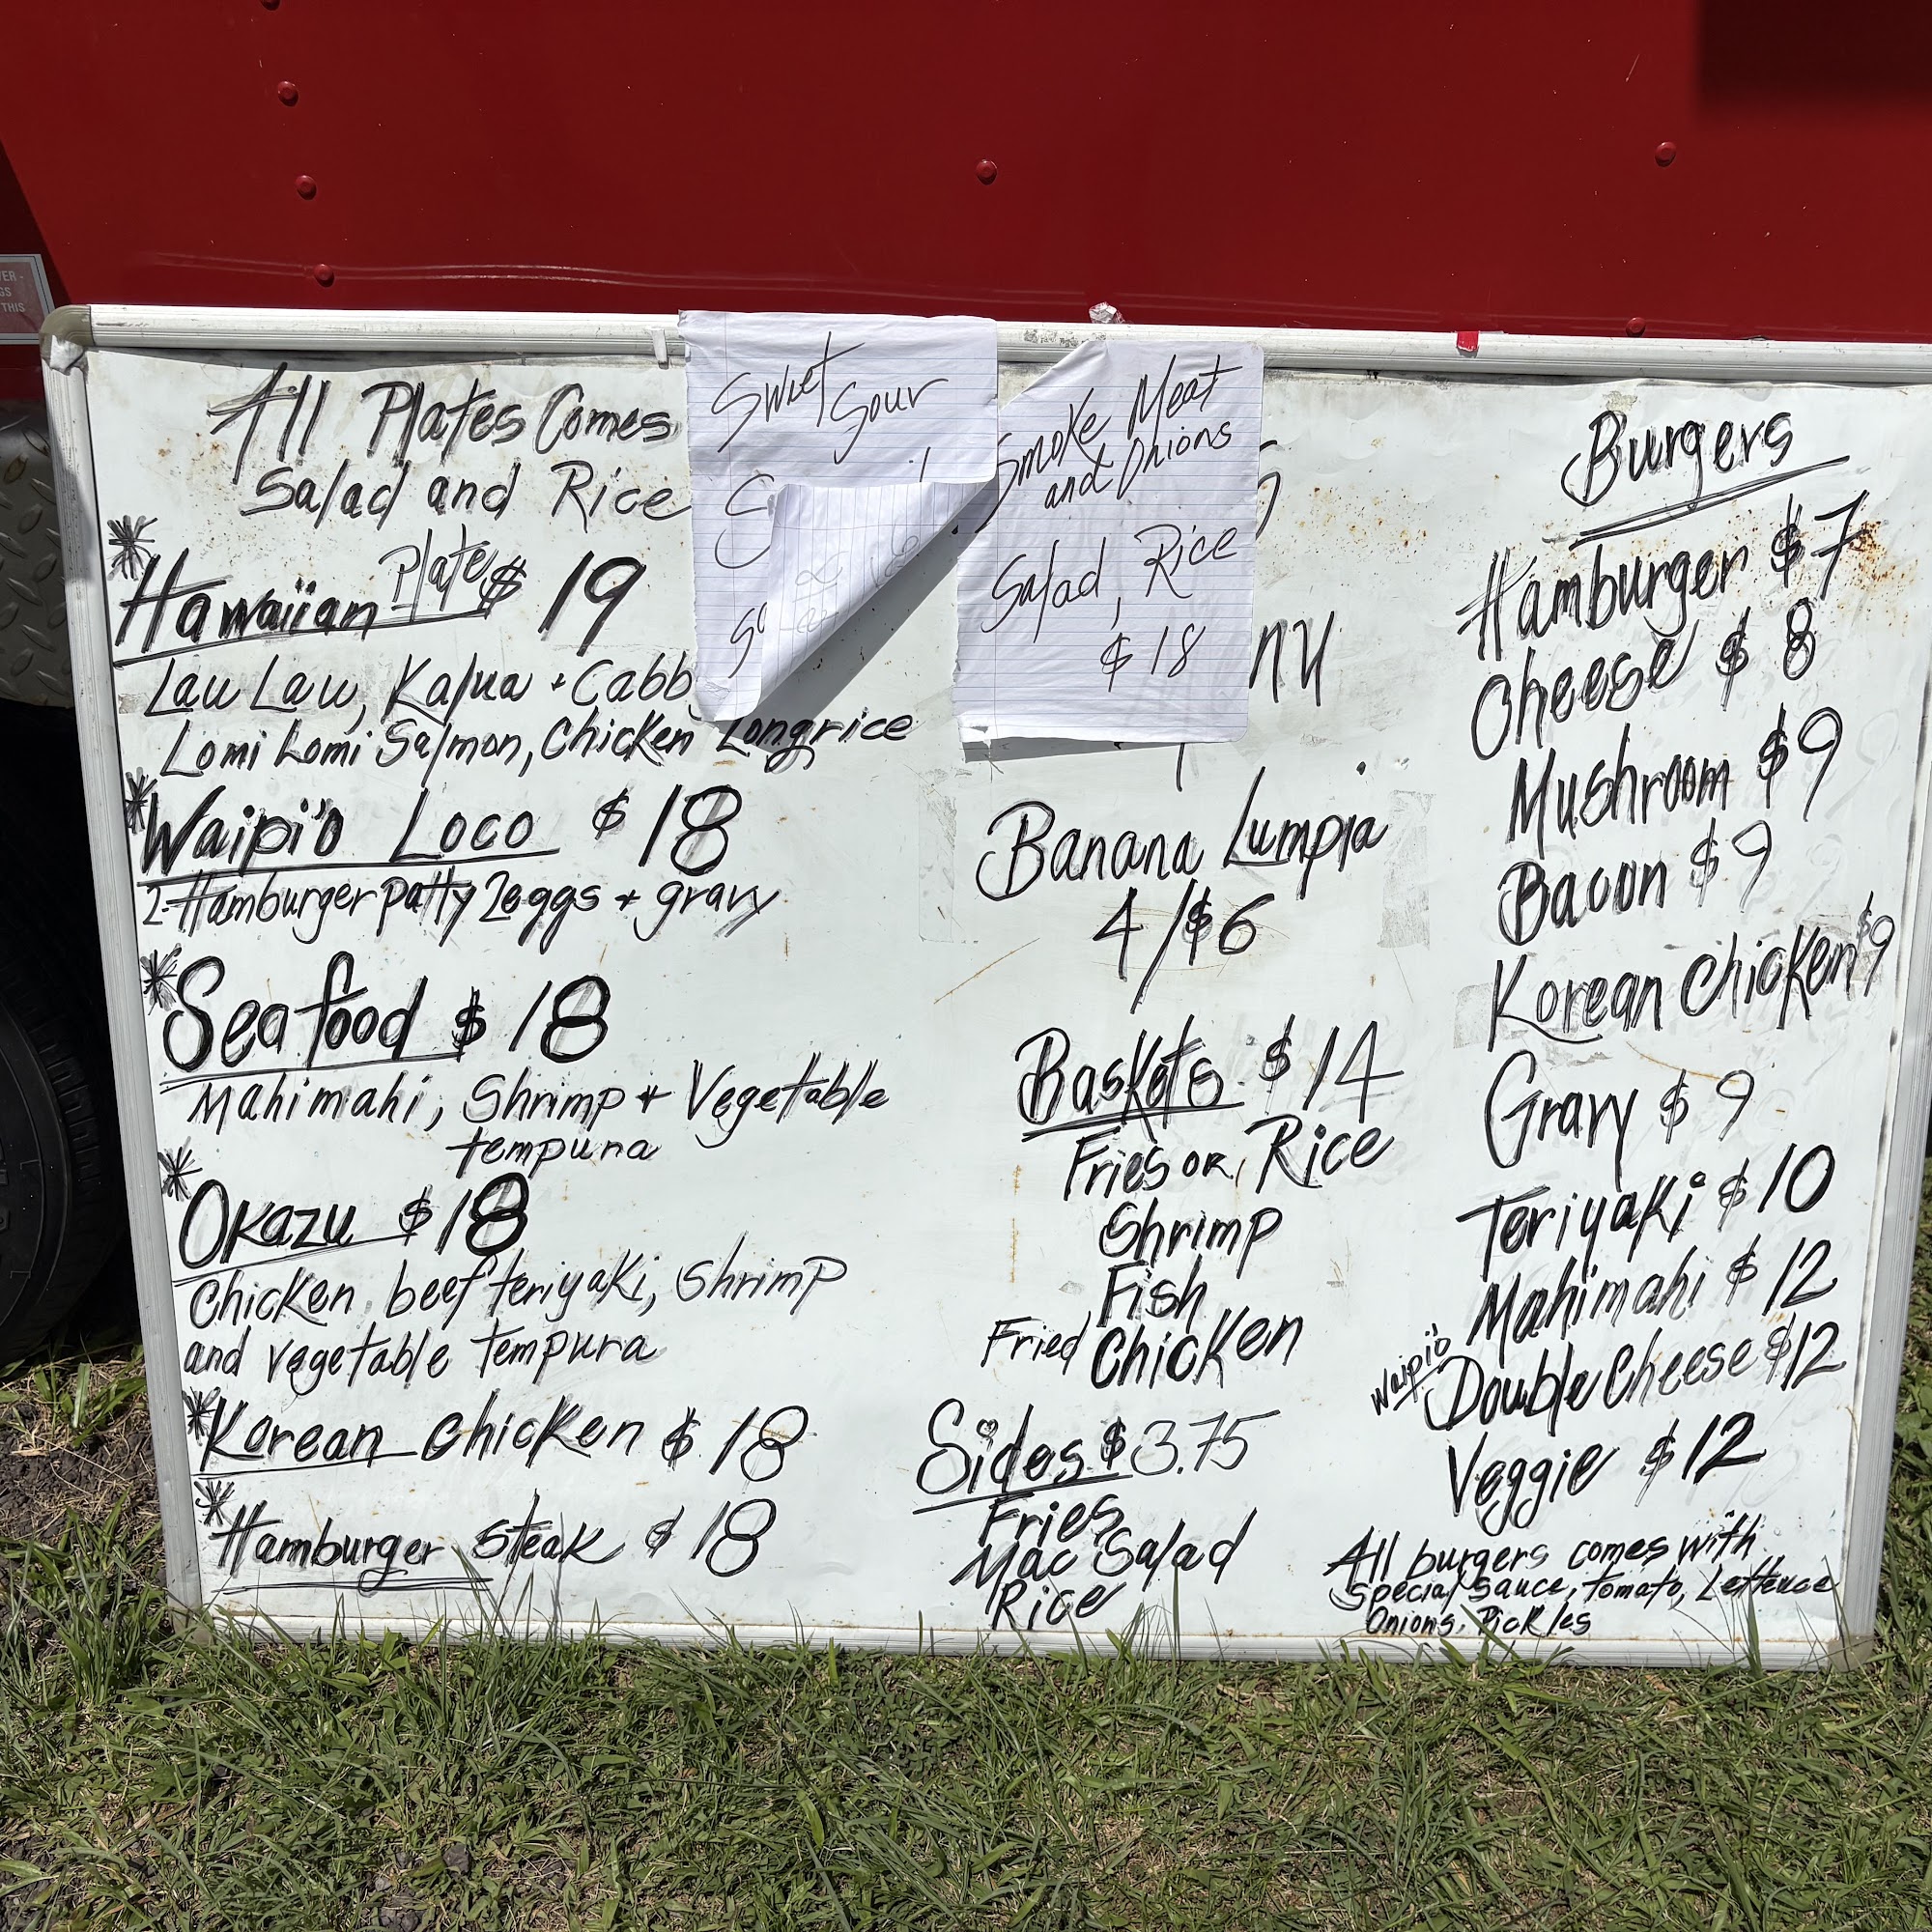 VER -
GS
THIS
All Plates Comes
Salad and Rice
* Hawaiian Plate $ 19
Lau Lau, Kalua + Cabb
Lomi Lomi Salmon, Chicken Longrice
* Waipi'o Loco $ 18
2-Hamburger patty 2eggs + gravy
* Seafood $ 18
Mahimahi, Shrimp + Vegetable
tempura
* Okazu $ 18
Chicken, beef teriyaki, Shrimp
and vegetable tempura
* Korean chicken $ 18
* Hamburger steak $ 18
Sweet
Sour
Smoke Meat
and Onions
Salad, Rice
$ 18
Banana Lumpia
4/$6
Baskets $ 14
Fries or Rice
Shrimp
Fish
Fried Chicken
Sides $ 3.75
Fries
Mac Salad
Rice
Burgers
Hamburger $ 7
Cheese $ 8
Mushroom $ 9
Bacon $ 9
Korean Chicken $9
Gravy $ 9
Teriyaki $ 10
Mahimahi $ 12
Waipi'o Double Cheese $12
Veggie $ 12
All burgers comes with
Special Sauce, Tomato, Lettuce
Onions, Pickles